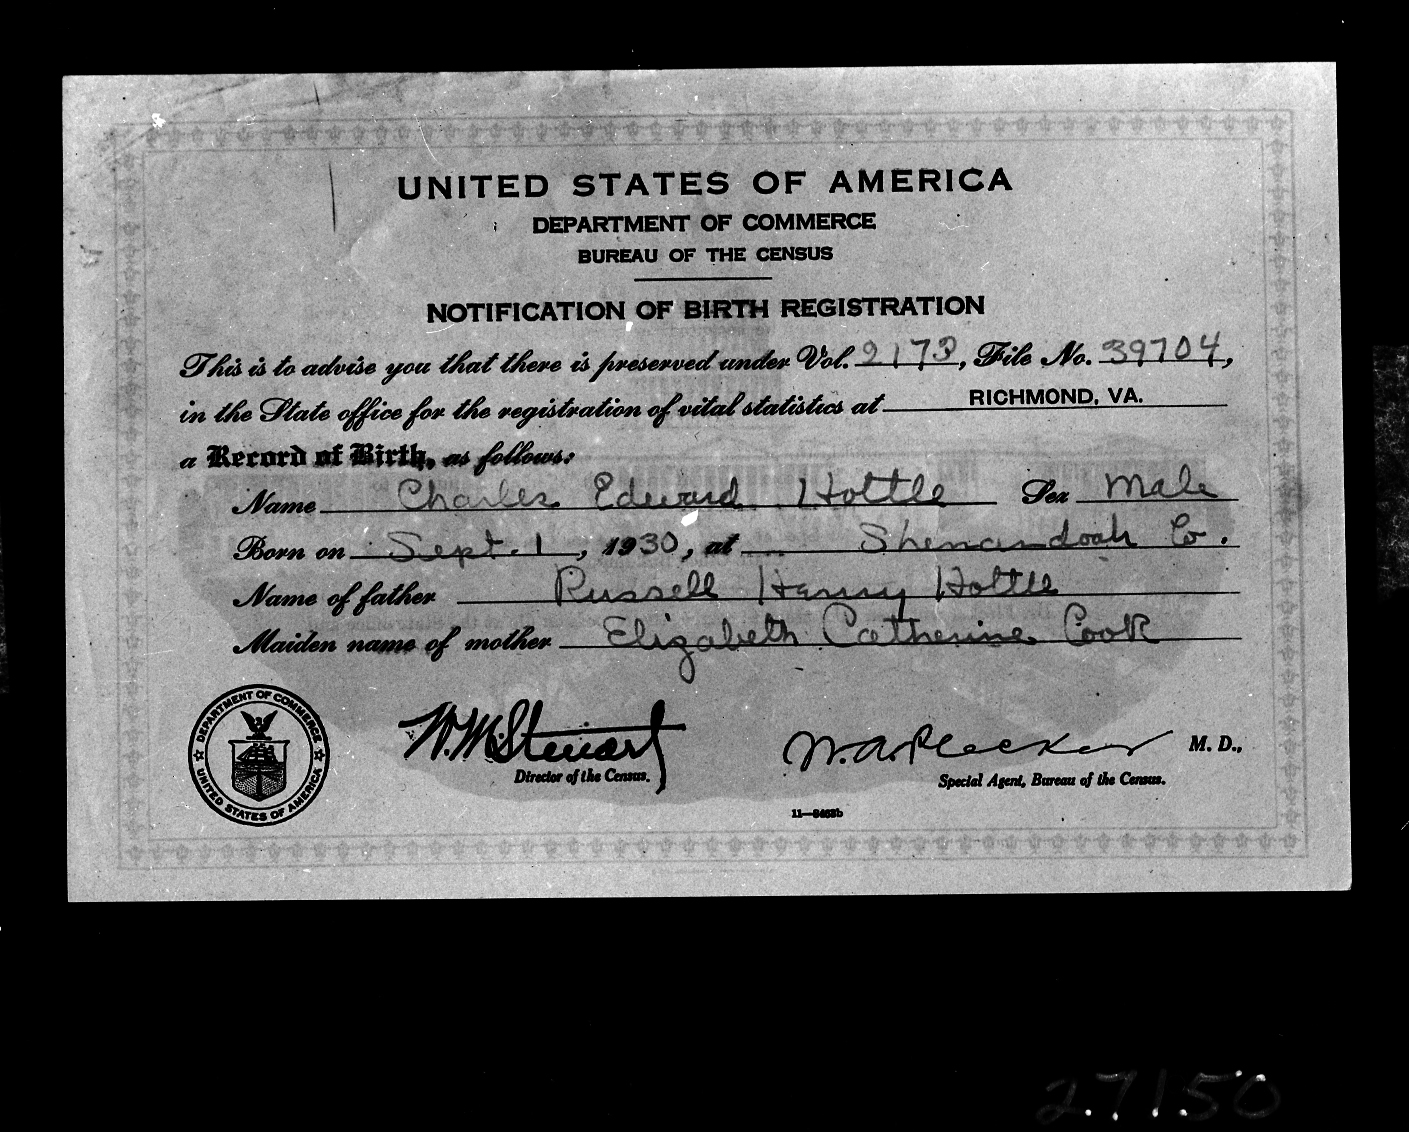 UNITED STATES OF AMERICA
DEPARTMENT OF COMMERCE
BUREAU OF THE CENSUS
NOTIFICATION OF BIRTH REGISTRATION
This is to advise you that there is preserved under Vol. 2173, File No. 39704,
in the State office for the registration of vital statistics at RICHMOND, VA.
a Record of Birth, as follows:
Name Charles Edward Hottle Sex Male
Born on Sept. 1, 1930, at Shenandoah Co.
Name of father Russell Henry Hottle
Maiden name of mother Elizabeth Catherine Cook
DEPARTMENT OF COMMERCE
UNITED STATES OF AMERICA
W. M. Steuart
Director of the Census.
W. A. Plecker M. D.,
Special Agent, Bureau of the Census.
27150